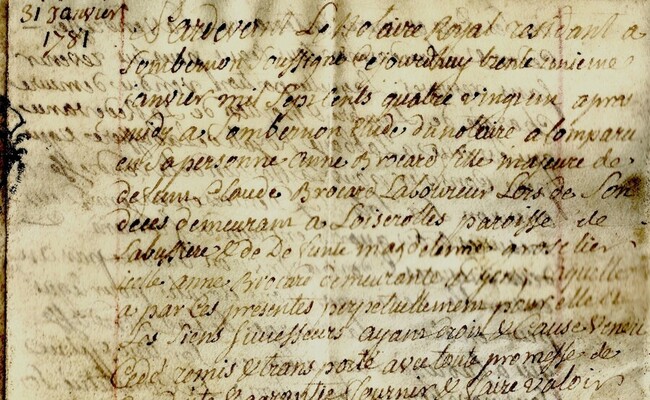 31 Janvier
1781
Pardevent Le Notaire Royal residant a
Sombernon Soussigné Cejourdhuy trente unieme
janvier mil Sept Cents quatre vingt un apres
midy a Sombernon Etude du notaire a Comparu
en Sa personne Anne Brocard fille majeure de
defunt Claude Brocard Laboureur Lors de Son
deces demeurant a Loiserolles paroisse de
Labussiere & de Defunte magdeleine
icelle anne Brocard demeurante laquelle
a par Ces presentes perpetuellement pour elle et
Les Siens Successeurs ayant droit & Cause Vendu
Cedé remis & transporté avec toute promesse de
& garantie fournir & faire Valoir